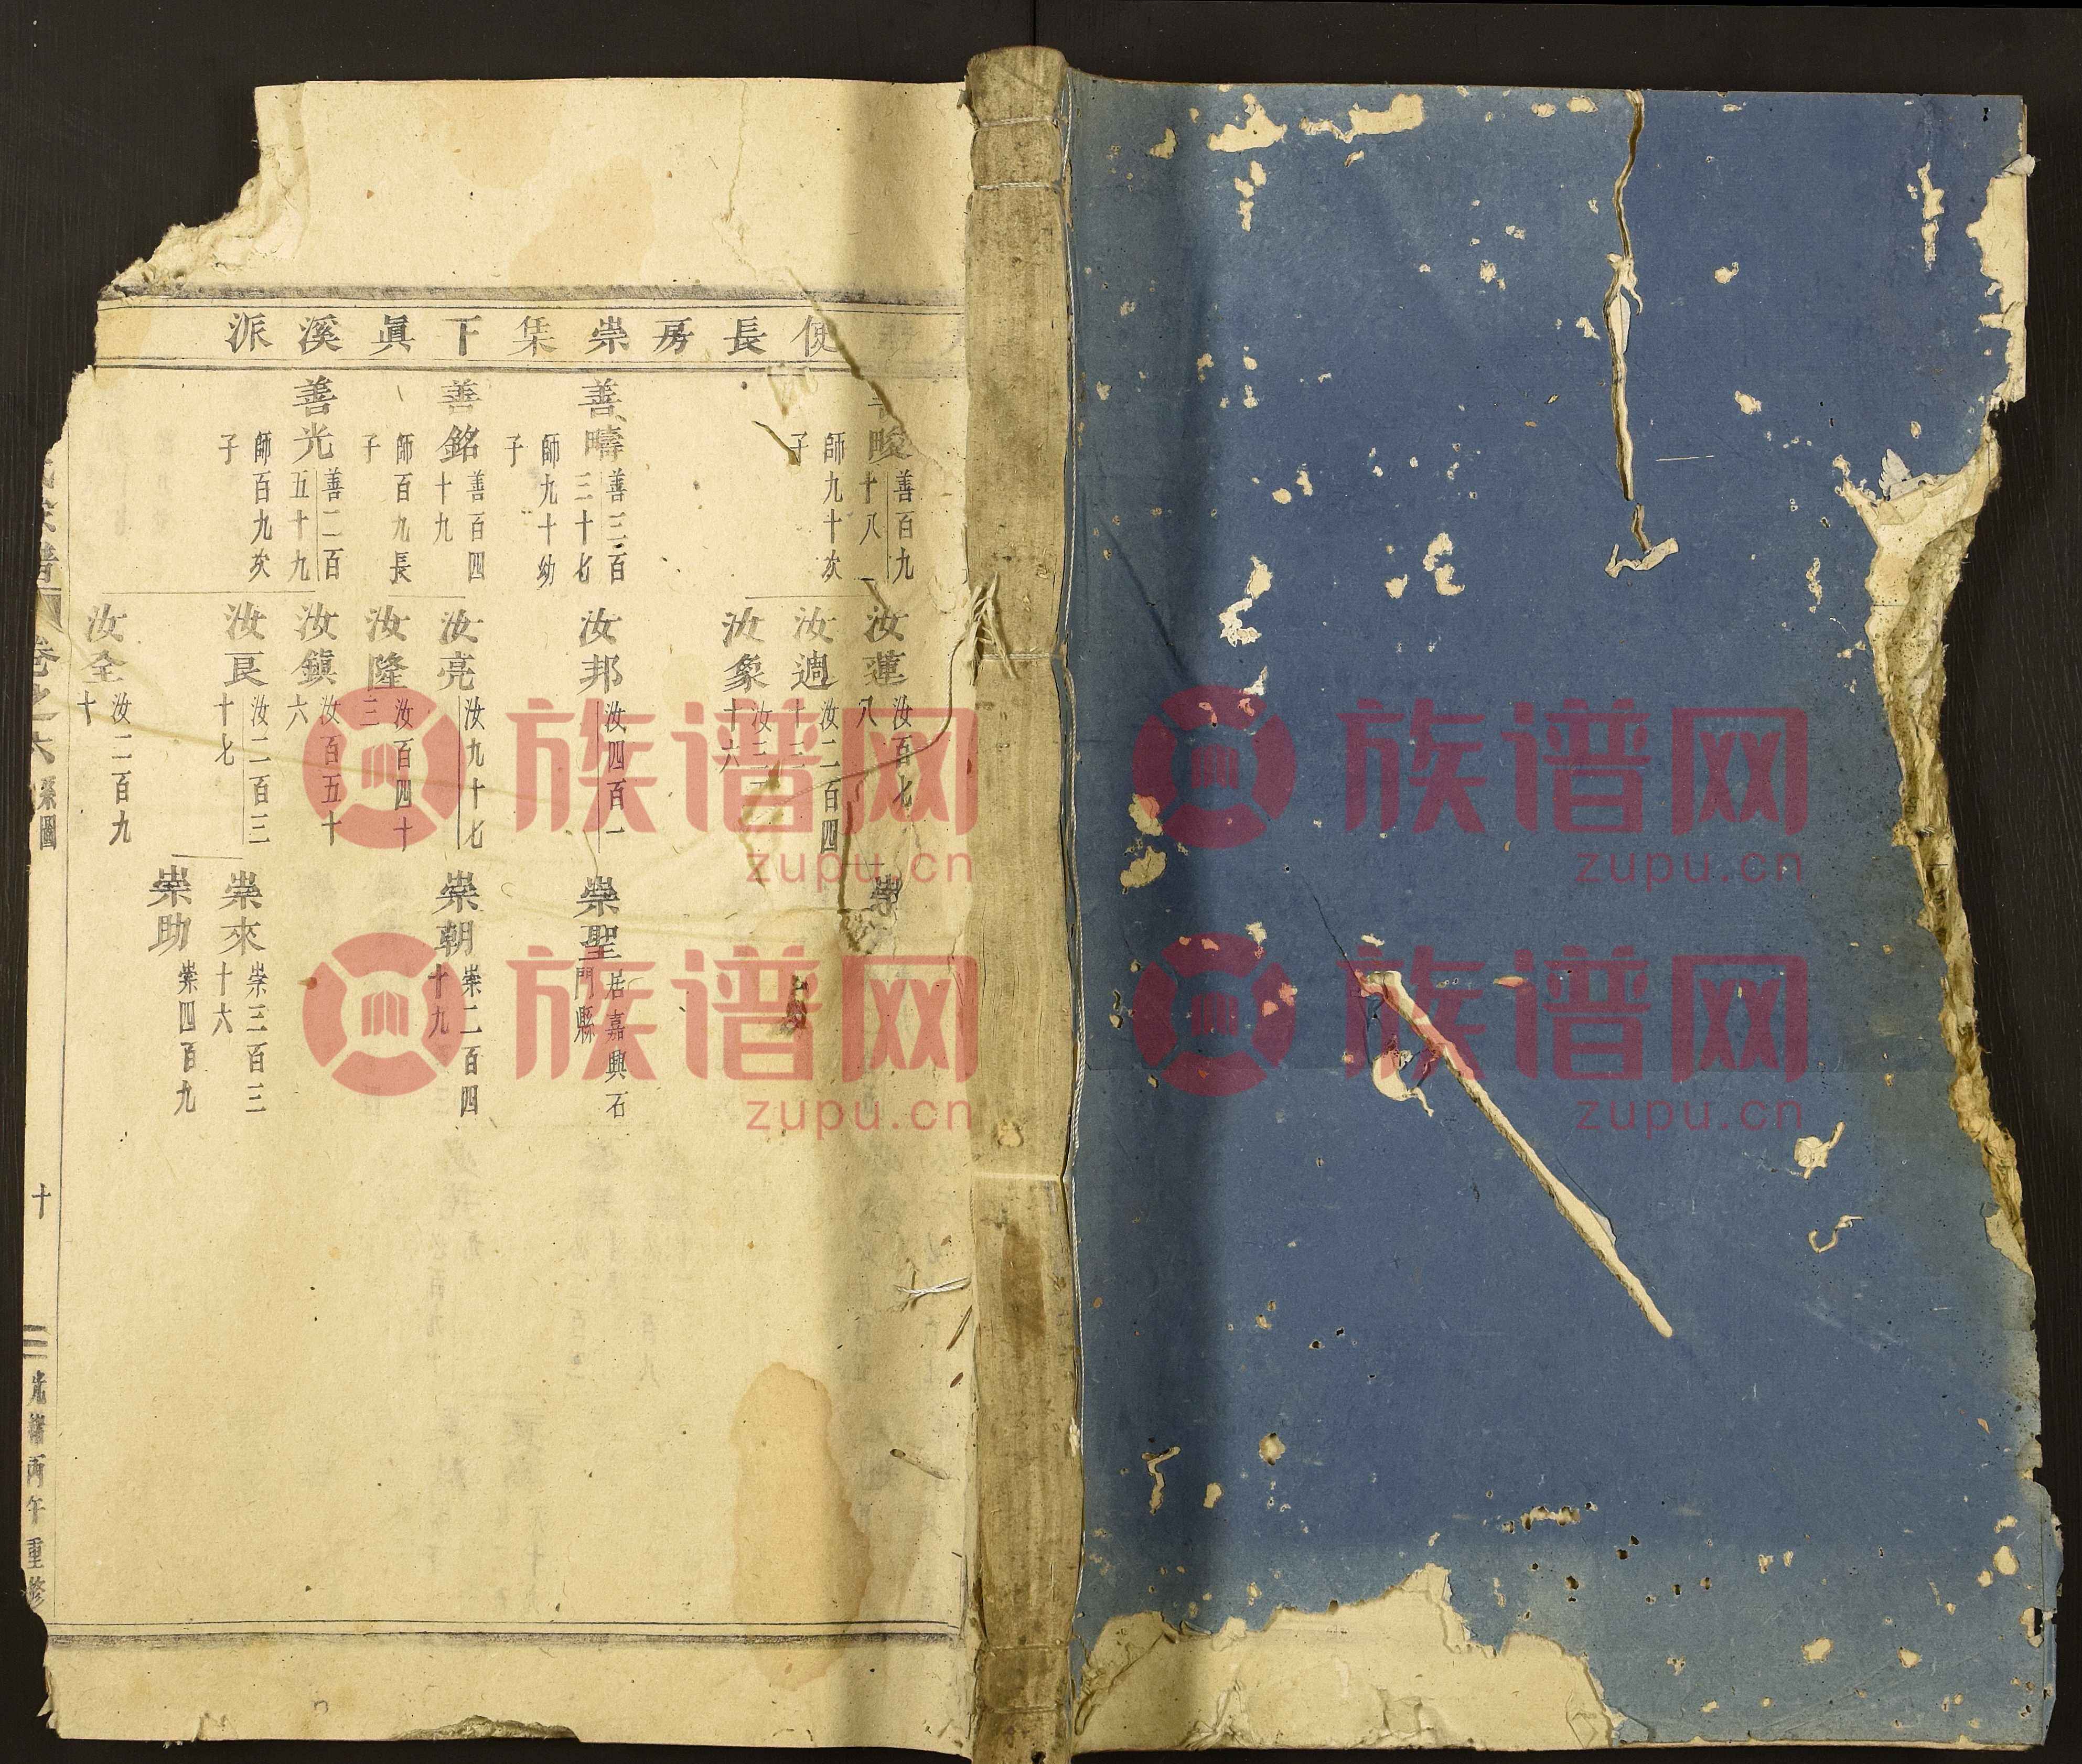 使長房崇集下眞溪派
畯
善百九
十八
師九十次
子
善疇
善三百
三十七
師九十幼
子
善銘
善百四
十九
師百九長
子
善光
善二百
五十九
師百九次
子
汝蓮
汝百七
八
汝週
汝二百四
十三
汝象
汝三
十六
汝邦
汝四百一
汝亮
汝九十七
汝隆
汝百四十
三
汝鎮
汝百五十
六
汝艮
汝二百三
十七
汝全
汝二百九
十
崇
崇聖
居嘉興石
門縣
崇朝
崇二百四
十九
崇來
崇三百三
十六
崇助
崇四百九
譜
卷之六
系圖
十
光緒丙午重修
族谱网
zupu.cn
族谱网
zupu.cn
族谱网
zupu.cn
族谱网
zupu.cn